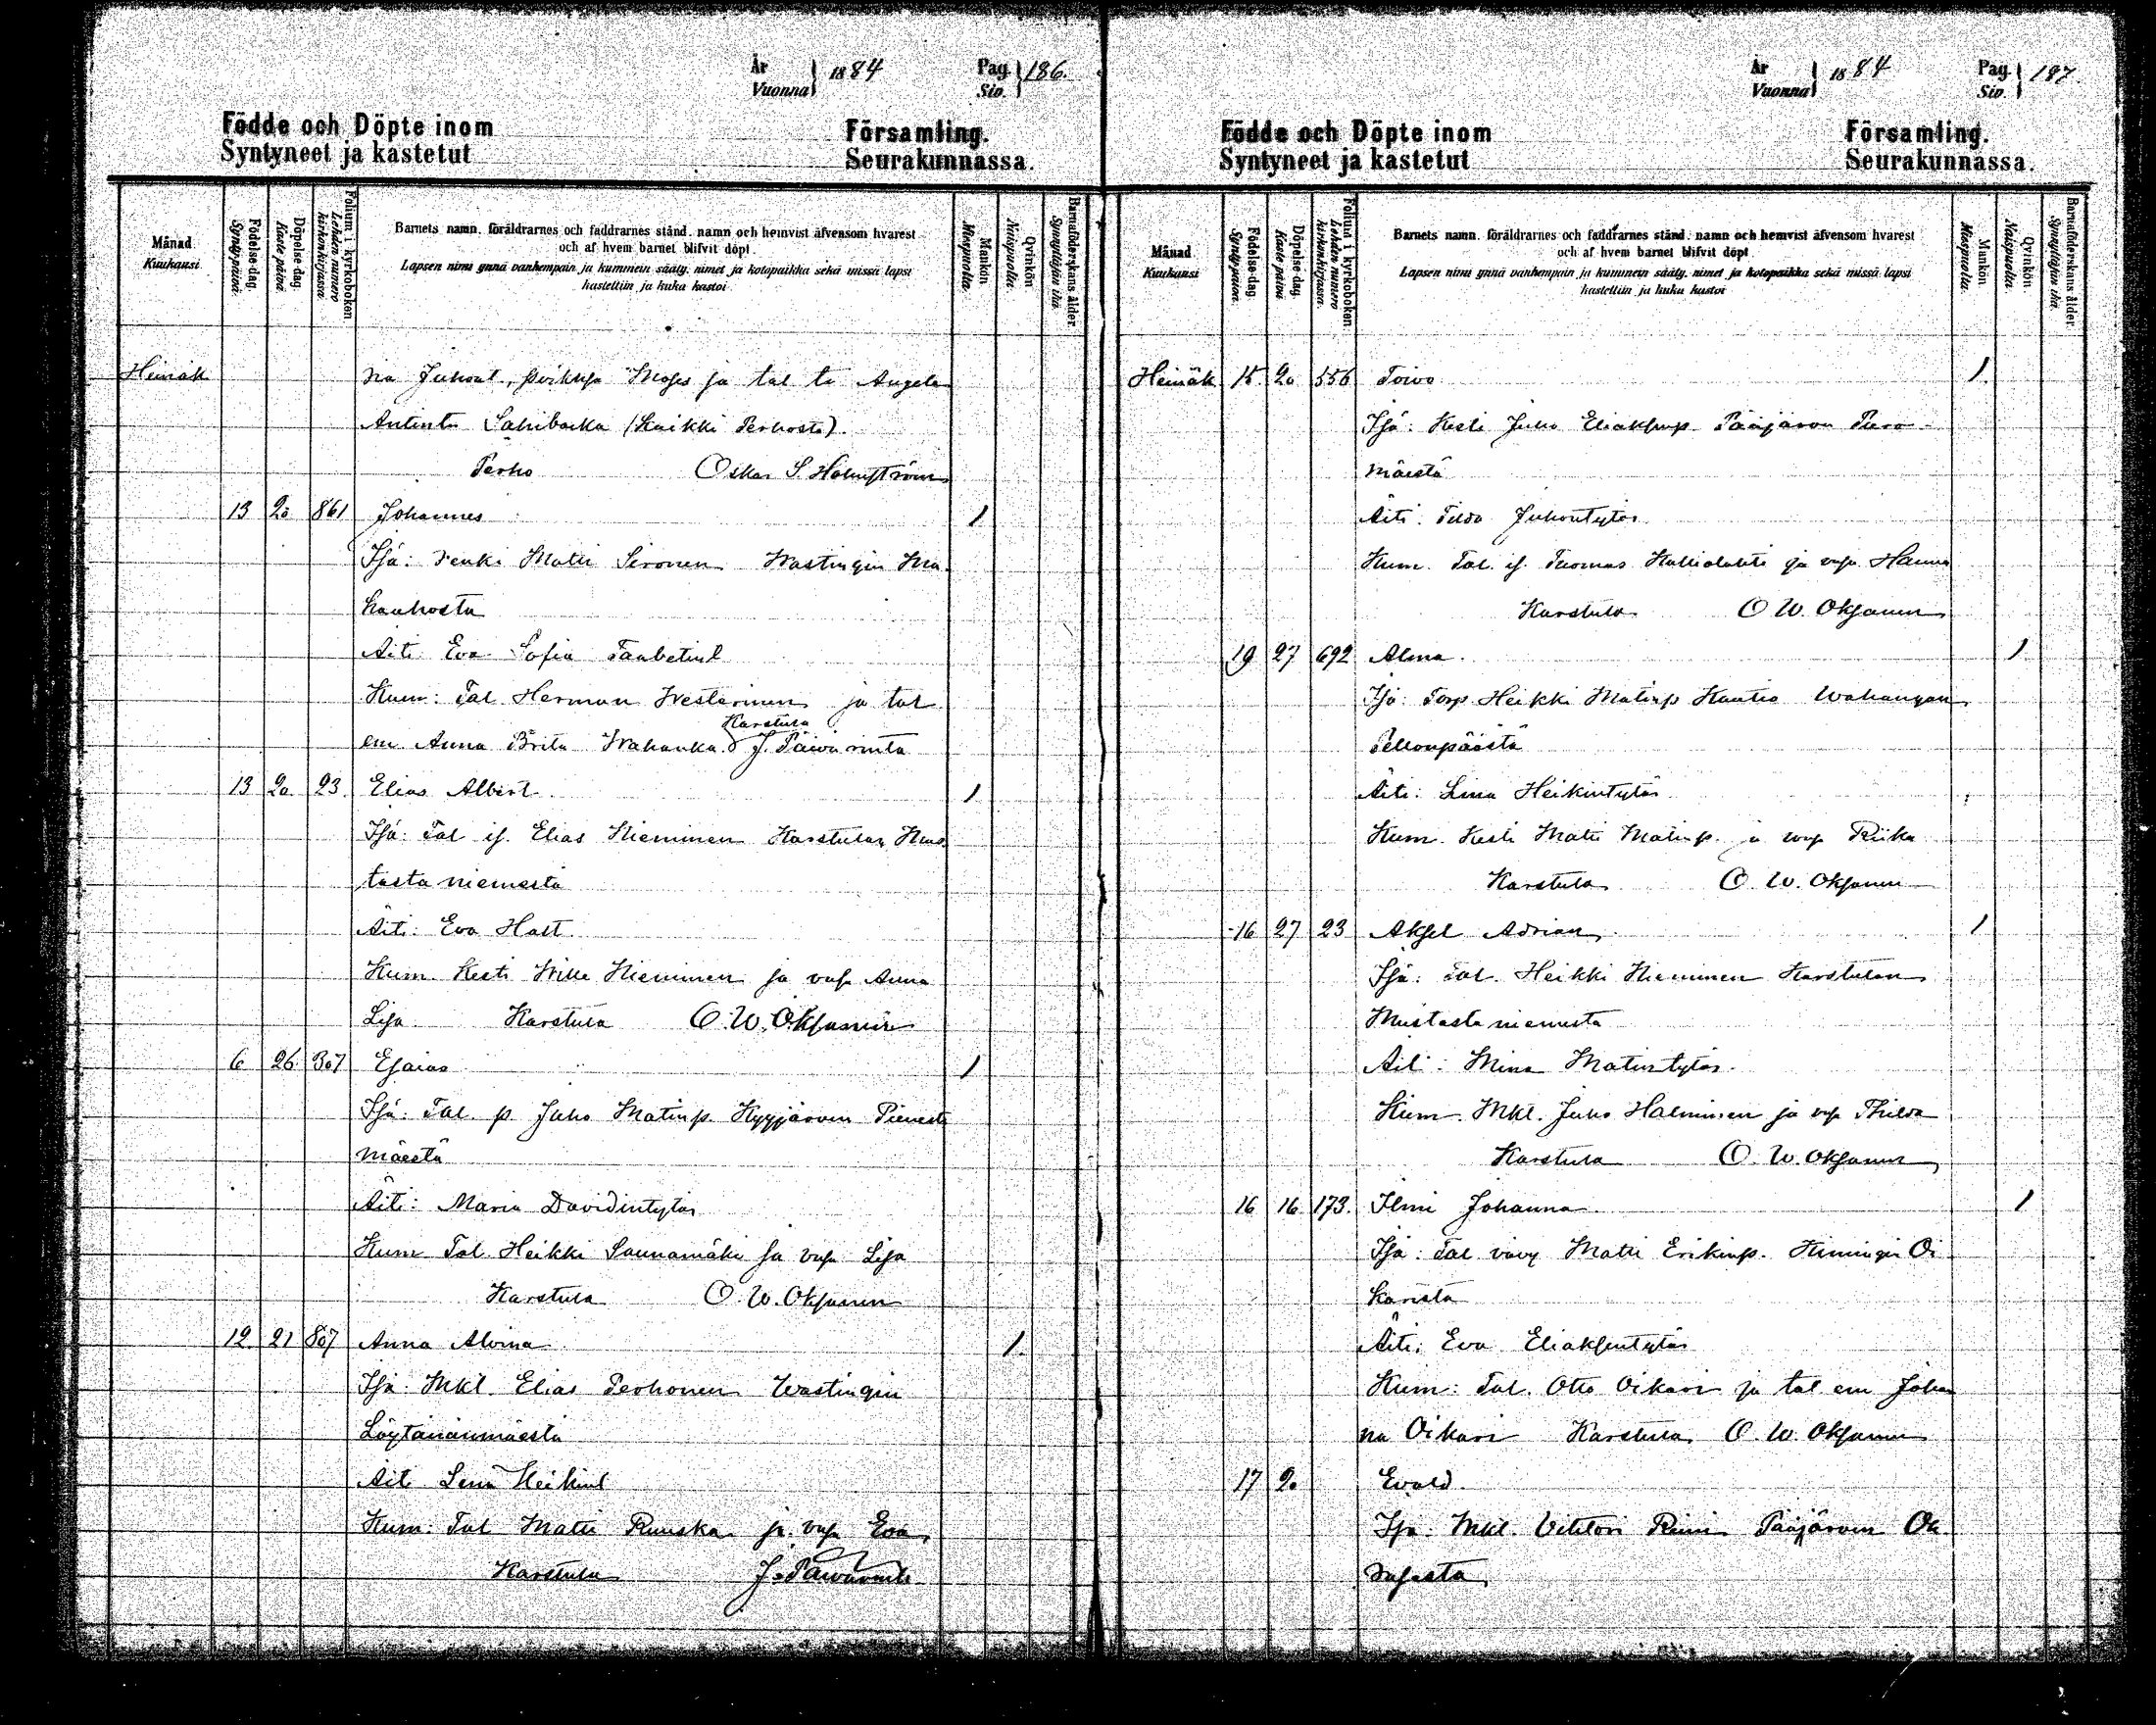 År Vuonna 1884 Pag. Siv. 186.
Födde och Döpte inom Församling.
Syntyneet ja kastetut Seurakunnassa.
Månad Kuukausi
Födelse-dag. Syntypäivä.
Döpelse dag. Kaste päivä
Folium i kyrkoboken. Lehden numero kirkonkirjassa.
Barnets namn, föräldrarnes och faddrarnes stånd, namn och hemvist äfvensom hvarest
och af hvem barnet blifvit döpt.
Lapsen nimi ynnä vanhempain ja kummein sääty, nimet ja kotopaikka sekä missä lapsi
kastettiin ja kuka kastoi
Mankön Miespuolta.
Qvinkön Naispuolta.
Barnaföderskans ålder. Synnyttäjän ikä.
Heinäk na Juhont, poikuja Moses ja tal ti Angela
Antintr (Kaikki Perhosta).
Perho Oskar S. Holmström
13 20 861 Johannes 1
Isä: renki Matti Sironen Wastingin Ma-
kauhosta
Äiti Eva Sofia Taabetint
Kum: Tal Herman Westerinen ja tal
em. Anna Brita Wahanka. Karstula J. Päivärinta
13 20 23. Elias Albert 1
Isä: Tal is. Elias Nieminen Karstulan Mus
tasta niemestä
Äiti: Eva Hast
Kum. Kesti Wille Nieminen ja vaja Anna
Lisa Karstula O. W. Oksanen
6 26 307 Esaias 1
Isä: Tal. p Juho Matinp. Kyyjärven Pienestä
mäestä
Äiti: Maria Davidintytär
Kum Tal. Heikki Saunamäki ja vaja Lisa
Karstula O. W. Oksanen
12 21 807 Anna Alvina 1.
Isä: Mkl. Elias Perhonen Wastingin
Löytänänmäestä
Äit. Lena Heikint
Kum: Tal Matti Ruuska ja vaja Eva
Karstula J. Päivärinta
År Vuonna 1884 Pag. Siv. 187
Födde och Döpte inom Församling.
Syntyneet ja kastetut Seurakunnassa.
Månad Kuukausi
Födelse-dag. Syntypäivä.
Döpelse-dag. Kaste päivä
Folium i kyrkoboken. Lehden numero kirkonkirjassa.
Barnets namn, föräldrarnes och faddrarnes stånd, namn och hemvist äfvensom hvarest
och af hvem barnet blifvit döpt
Lapsen nimi ynnä vanhempain ja kummein sääty, nimet ja kotopaikka sekä missä lapsi
kastettiin ja kuka kastoi
Mankön Miespuolta.
Qvinkön Naispuolta.
Barnaföderskans ålder. Synnyttäjän ikä.
Heinäk 15 20 556 Toivo 1.
Isä: Kesti Juho Eliaksenp. Pääjärven
mäestä
Äiti: Tilda Juhontytär
Kum. Tal. is. Tuomas Kallioluhti ja vaja Hanna
Karstula O W. Oksanen
19 27 692 Alma. 1
Isä: Torp Heikki Matinp Kautia Wahangan
Pellonpäästä
Äiti: Lina Heikintytär
Kum. Kesti Matti Matinp. ja vaja Riika
Karstula O. W. Oksanen
16 27 23 Aksel Adrian 1
Isä: Tal. Heikki Nieminen Karstulan
Mustasta niemestä
Äiti: Mina Matintytär.
Kum. Mkl. Juho Halminen ja vaja Thilda
Karstula O. W. Oksanen
16 16 173. Ilmi Johanna 1
Isä: Tal vävy Matti Erikinp. Kimingin Oi
karista
Äiti: Eva Eliaksentytär
Kum: Tal. Otto Oikari ja tal em Johan
na Oikari Karstula O. W. Oksanen
17 20 Evald.
Isä. Mkl. Vihtori Pääjärven Ok